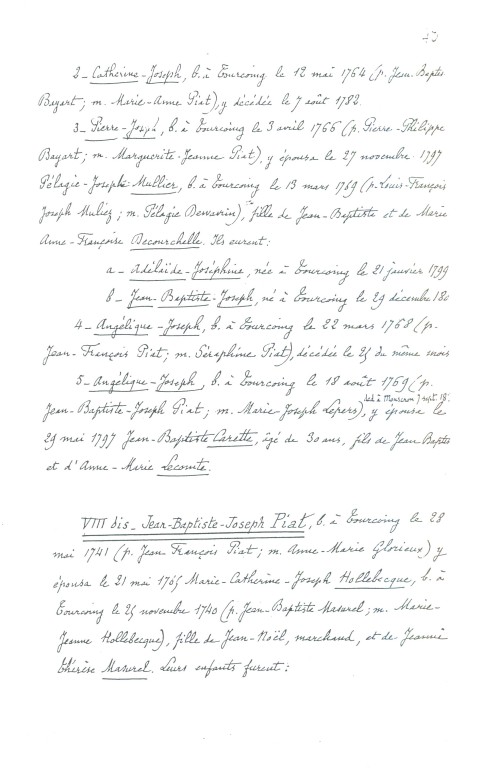 2 - Catherine-Joseph, b. à Tourcoing le 12 mai 1764 (p. Jean-Baptis
Bayart ; m. Marie-Anne Piat), y décédée le 7 août 1782.
3 - Pierre-José, b. à Tourcoing le 3 avril 1766 (p. Pierre-Philippe
Bayart ; m. Marguerite-Jeanne Piat), y épousa le 27 novembre 1797
Pélagie-Joseph Mullier, b. à Tourcoing le 13 mars 1769 (p. Louis-François
Joseph Muliez ; m. Pélagie Dewavrin), fille de Jean-Baptiste et de Marie
Anne-Françoise Decourchelle. Ils eurent :
a - Adélaïde-Joséphine, née à Tourcoing le 21 janvier 1799
b - Jean-Baptiste-Joseph, né à Tourcoing le 29 décembre 180
4 - Angélique-Joseph, b. à Tourcoing le 22 mars 1768 (p.
Jean-François Piat ; m. Séraphine Piat), décédée le 25 du même mois
5 - Angélique-Joseph, b. à Tourcoing le 18 août 1769 (p.
déd à Mouscron 7 sept. 18
Jean-Baptiste-Joseph Piat ; m. Marie Joseph Lepers), y épousa le
29 mai 1797 Jean-Baptiste Carette, âgé de 30 ans, fils de Jean Baptis
et d'Anne-Marie Lecomte.
VIII bis - Jean-Baptiste-Joseph Piat, b. à Tourcoing le 28
mai 1741 (p. Jean François Piat ; m. Anne-Marie Glorieux) y
épousa le 21 mai 1765 Marie-Catherine-Joseph Hollebecque, b. à
Tourcoing le 25 novembre 1740 (p. Jean-Baptiste Masurel ; m. Marie-
Jeanne Hollebecque), fille de Jean-Noël, marchand, et de Jeanne
Thérèse Masurel. Leurs enfants furent :